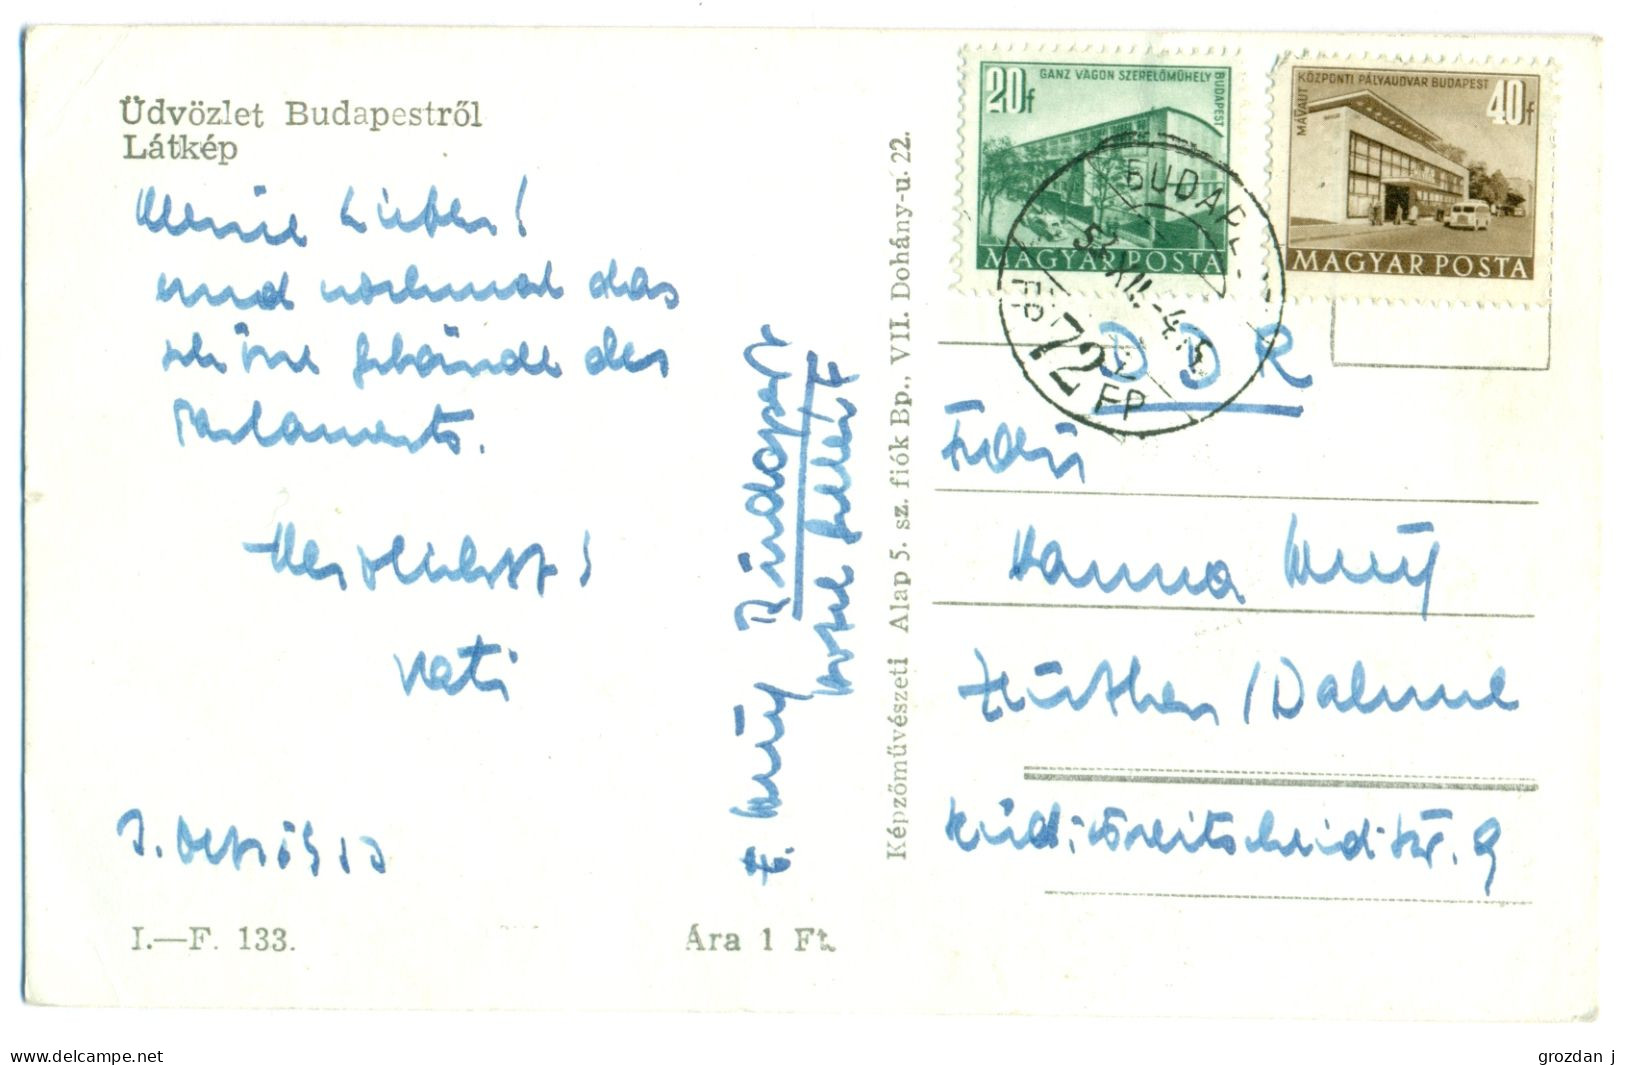 Üdvözlet Budapestről
Látkép
Meine Lieben!
und nochmal das
schöne Gebäude des
Parlaments.
Herzlichst!
Kati
I.—F. 133.
Ára 1 Ft.
Budapest
Képzőművészeti Alap 5. sz. fiók Bp., VII. Dohány-u. 22.
20f
GANZ VAGON SZERELŐMŰHELY
BUDAPEST
MAGYAR POSTA
MÁVAUT
KÖZPONTI PÁLYAUDVAR BUDAPEST
40f
MAGYAR POSTA
BUDAPE
72
FP
DDR
Hanna
/Dahme
9
delcampe.net
grozdan j